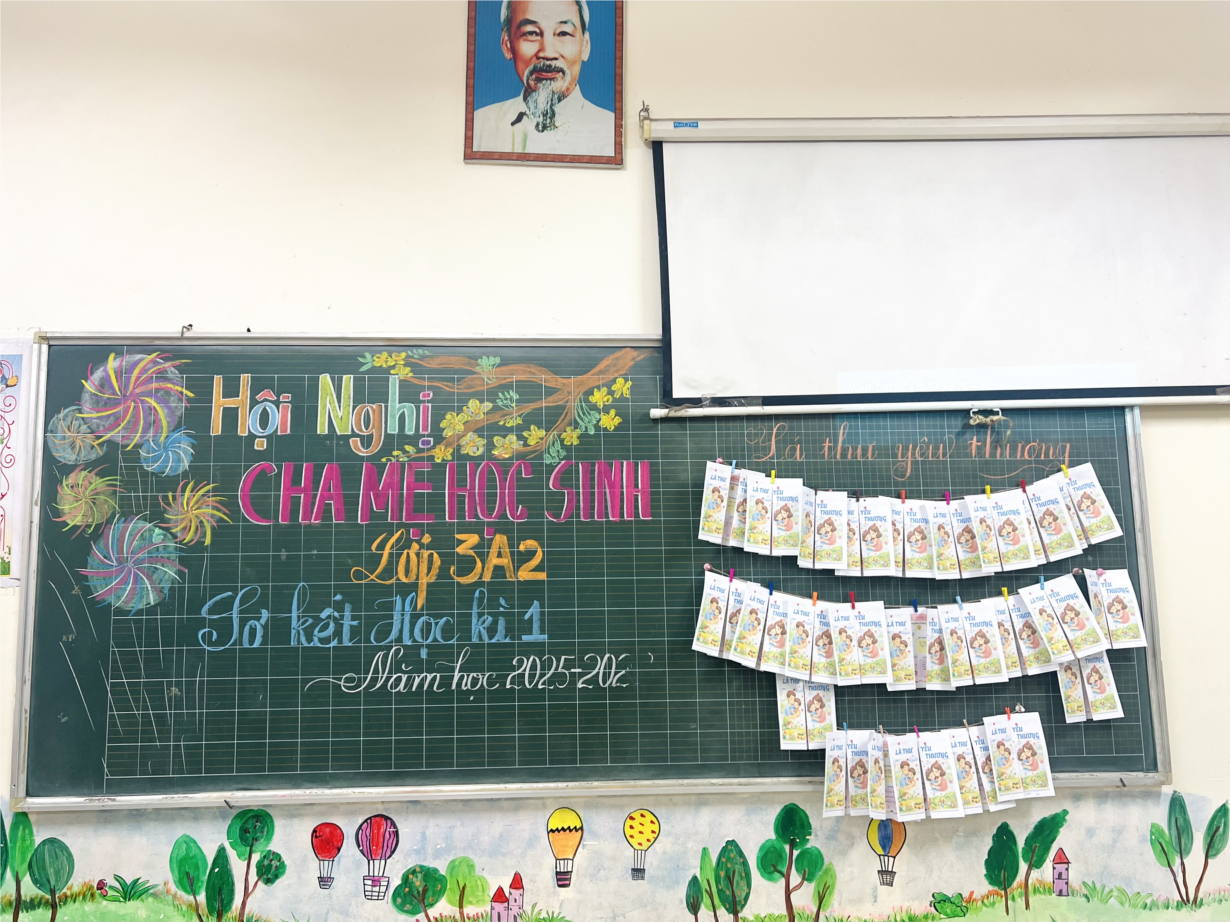 Hội Nghị
CHA MẸ HỌC SINH
Lớp 3A2
Sơ kết Học kì 1
Năm học 2025-202
Lá thư yêu thương
LÁ THƯ YÊU THƯƠNG